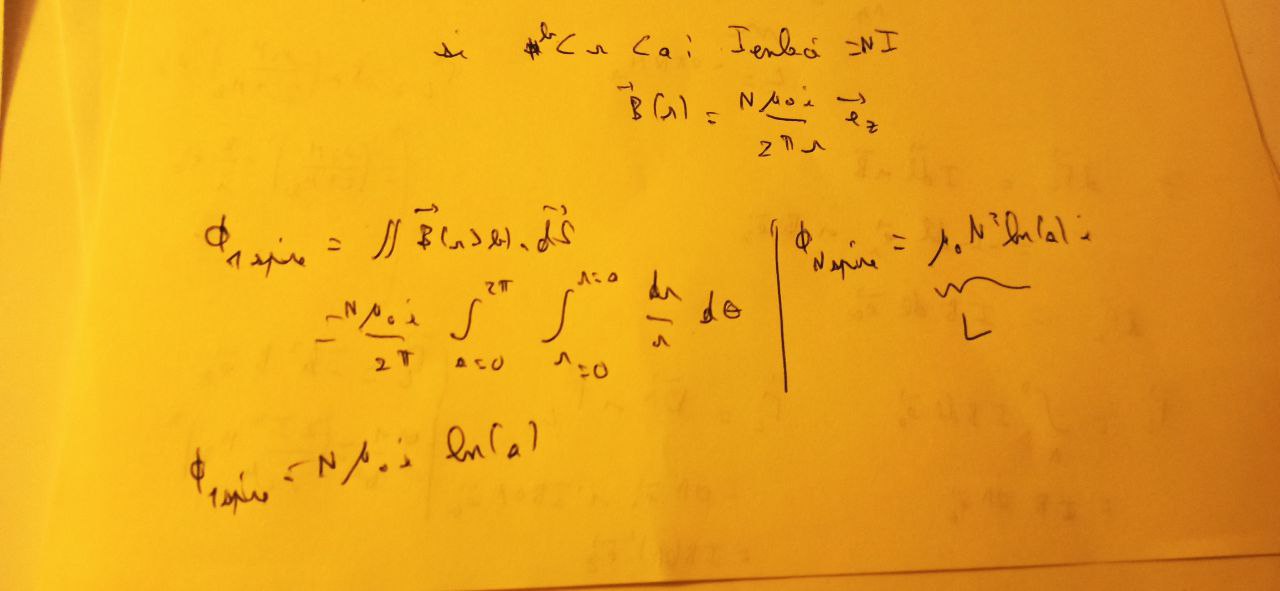 si b < r < a : I enlacé = NI
B⃗(r) = Nμ₀i / 2πr e⃗z
ϕ1 spire = ∬ B⃗(r>b) . dS⃗
= Nμ₀i / 2π ∫θ=0^2π ∫r=0^r=a dr/r dθ
ϕ1 spire = Nμ₀i ln(a)
ϕN spire = μ₀N² ln(a) i
L